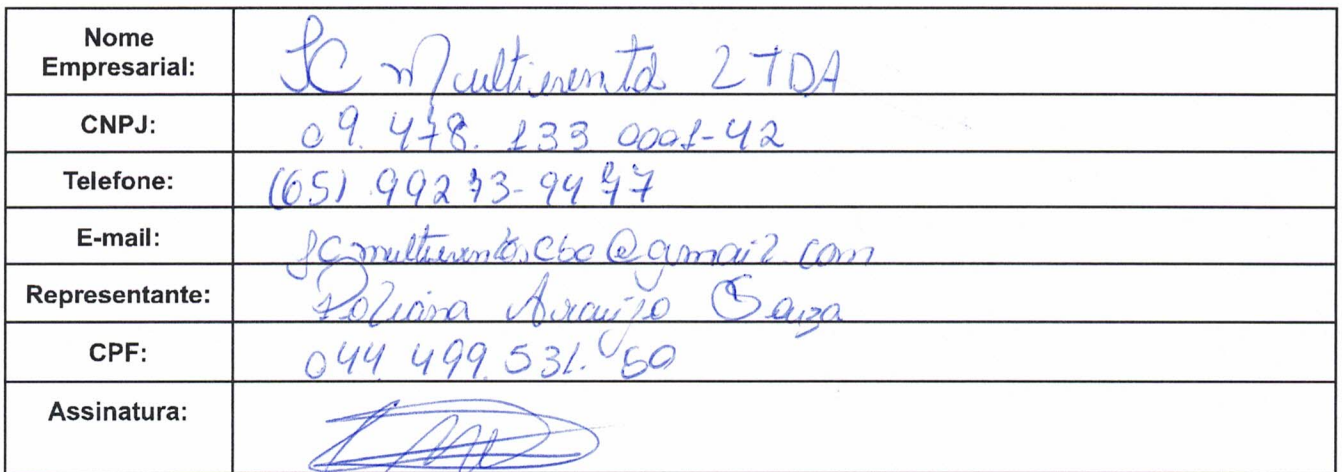 Nome
Empresarial:
SC Multieventos LTDA
CNPJ:
09.478.133 0001-42
Telefone:
(65) 99273-9477
E-mail:
scmultieventos.cba@gmail.com
Representante:
Poliana Araújo Souza
CPF:
044 499.531.50
Assinatura: